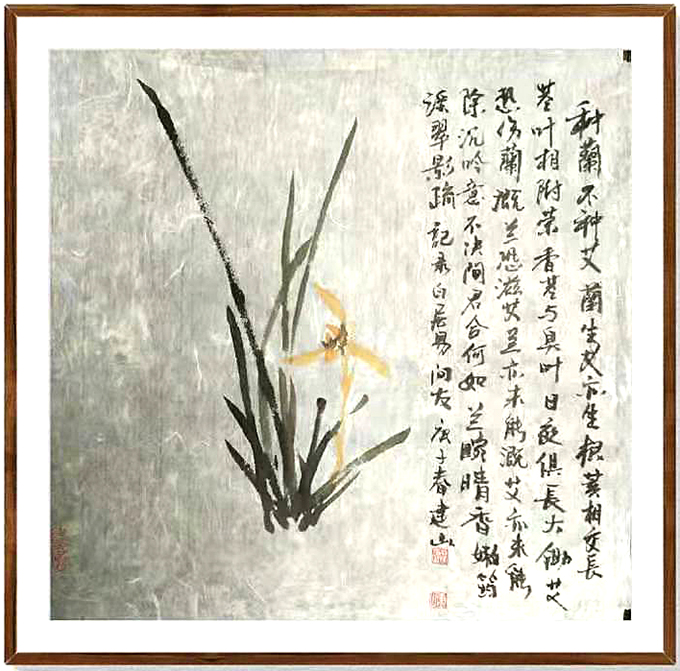 种蘭不种艾蘭生艾亦生根荄相交長
茎叶相附荣香茎与臭叶日夜俱長大鋤艾
恐伤蘭溉兰恐滋艾兰亦未能溉艾亦未能
除沉吟意不决问君合何如兰畹晴香嫩筠
溪翠影疏記录白居易问友庚子春建山